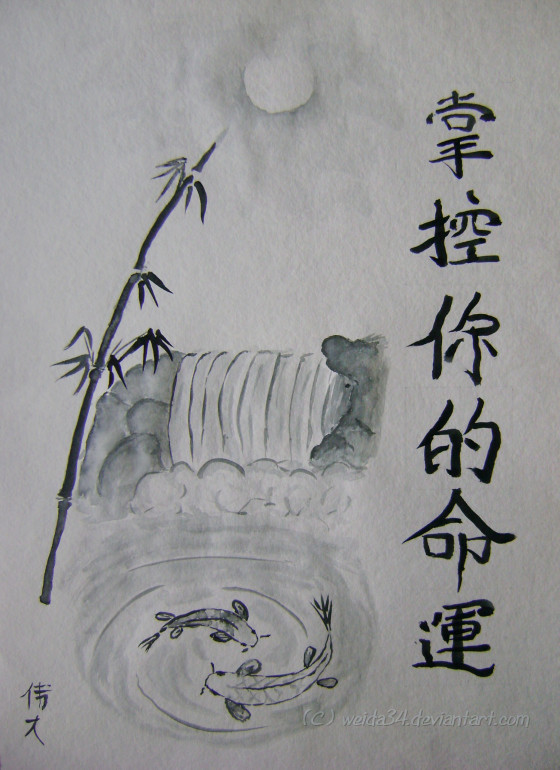 掌控你的命運
伟大
(C) weida34.deviantart.com